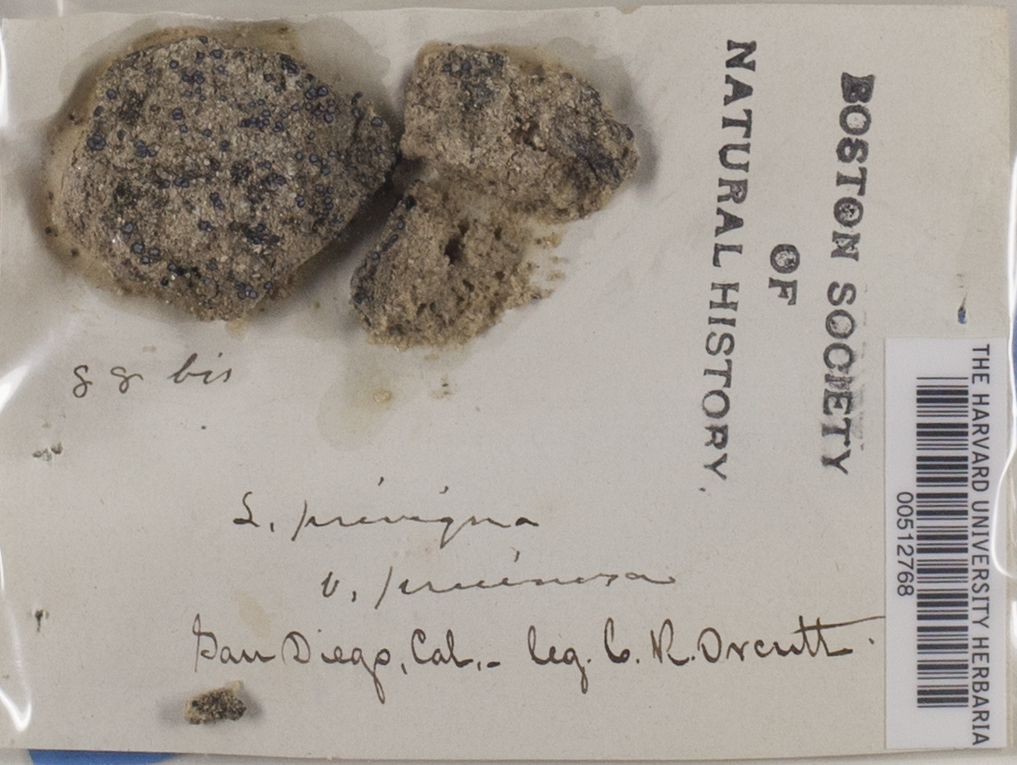 BOSTON SOCIETY
OF
NATURAL HISTORY.
g g bis
L. privigna
v. pruinosa
San Diego, Cal. - leg. C. R. Orcutt.
THE HARVARD UNIVERSITY HERBARIA
00512768